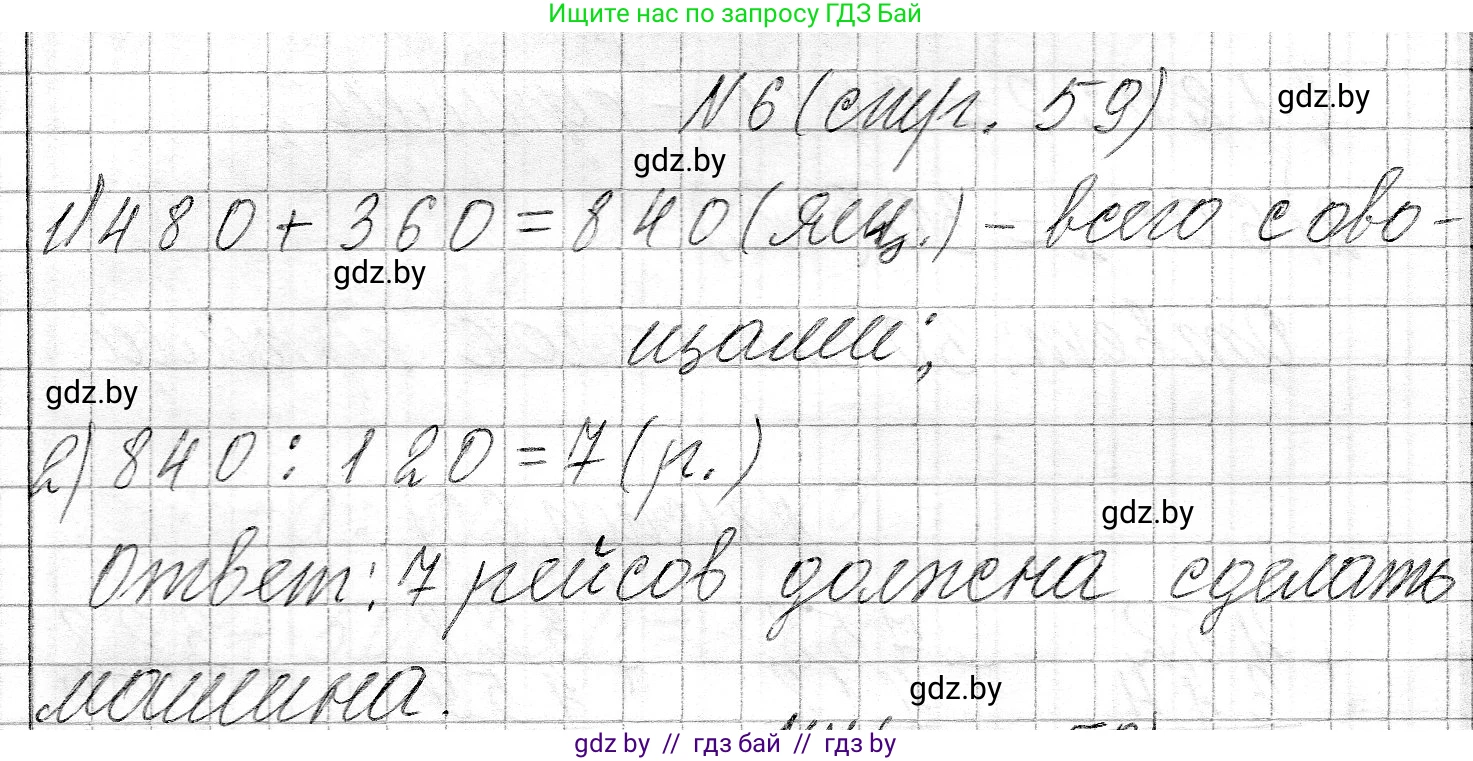 Ищите нас по запросу ГДЗ Бай
№6 (стр. 59)
gdz.by
gdz.by
1) 480 + 360 = 840 (ящ.) - всего с ово-
gdz.by
щами;
gdz.by
2) 840 : 120 = 7 (р.)
gdz.by
Ответ: 7 рейсов должна сделать
машина.
gdz.by
gdz by // гдз бай // гдз by